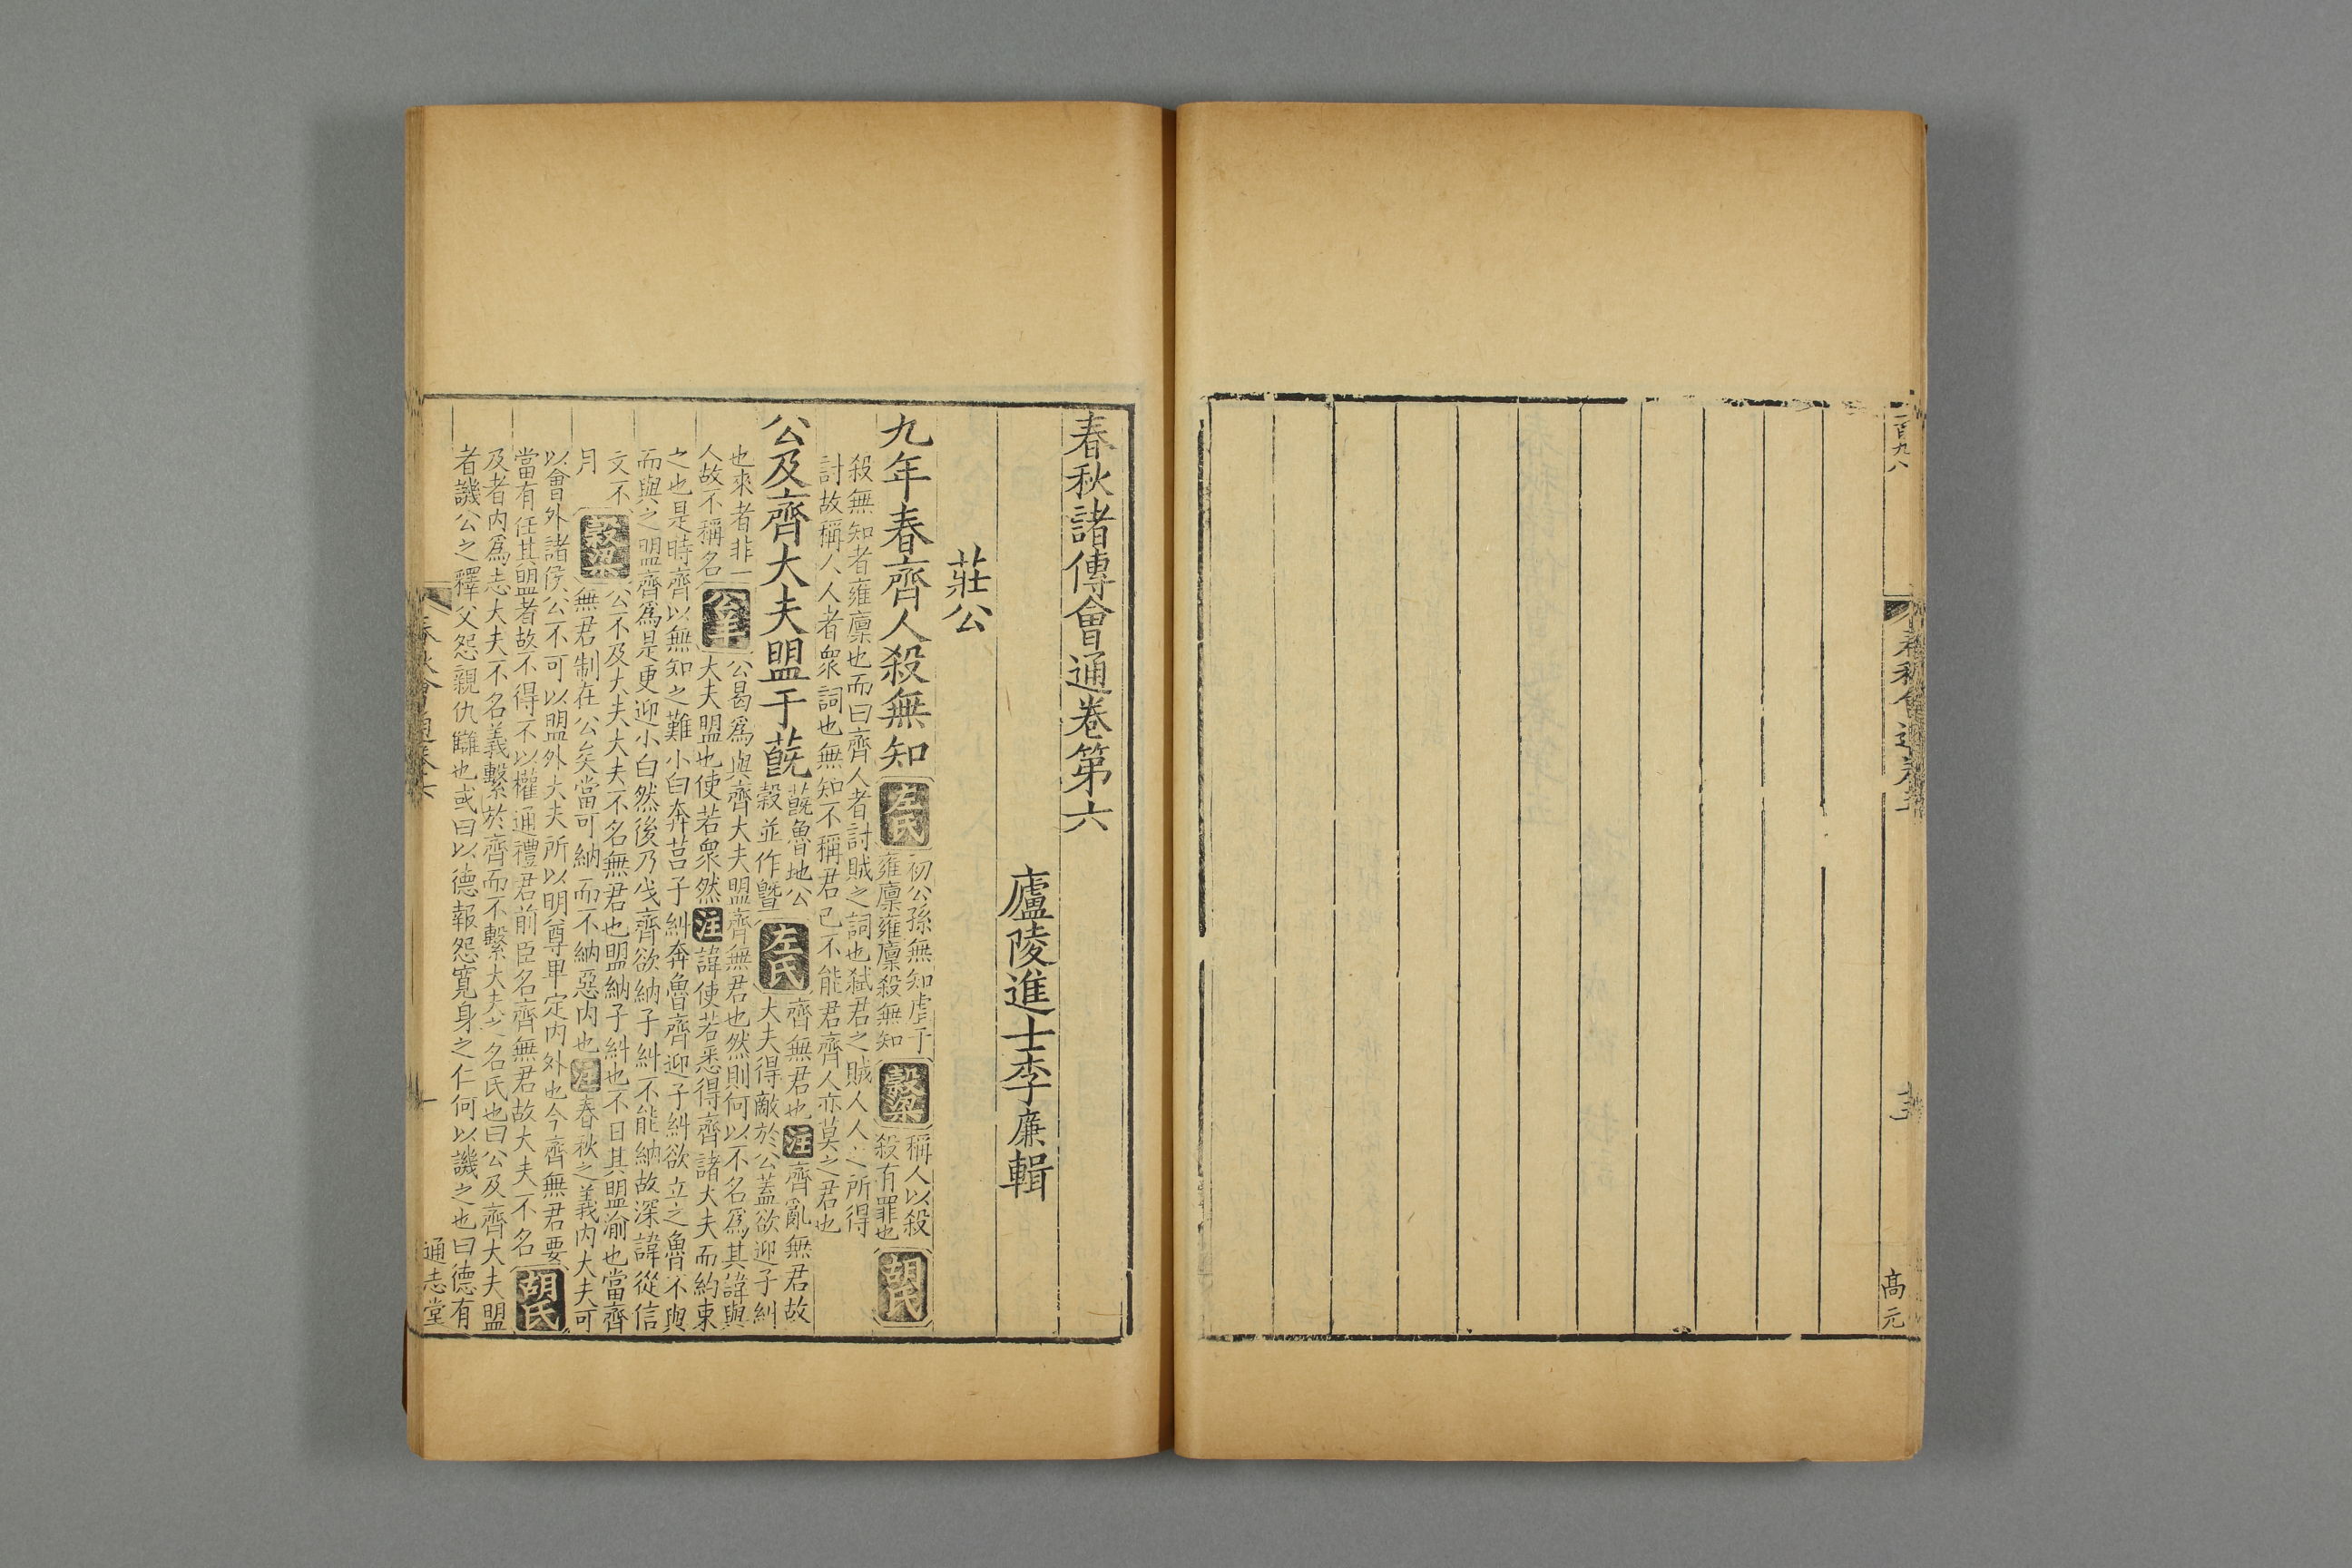 一百九八
春秋會通卷五
十三
高元
春秋諸傳會通卷第六
廬陵進士李廉輯
莊公
九年春齊人殺無知 左氏 初公孫無知虐于
雍廩雍廩殺無知 穀梁 稱人以殺
殺有罪也 胡氏
殺無知者雍廩也而曰齊人者討賊之詞也弑君之賊人人之所得
討故稱人人者衆詞也無知不稱君已不能君齊人亦莫之君也
公及齊大夫盟于蔇 蔇魯地公
穀並作曁 左氏 齊無君也 注 齊亂無君故
大夫得敵於公蓋欲迎子糾
也來者非一
人故不稱名 公羊 公曷爲與齊大夫盟齊無君也然則何以不名爲其諱與
大夫盟也使若衆然 注 諱使若悉得齊諸大夫而約束
之也是時齊以無知之難小白奔莒子糾奔魯齊迎子糾欲立之魯不與
而與之盟齊爲是更迎小白然後乃伐齊欲納子糾不能納故深諱從信
文不
月 穀梁 公不及大夫大夫不名無君也盟納子糾也不日其盟渝也當齊
無君制在公矣當可納而不納惡内也 注 春秋之義内大夫可
以會外諸侯公不可以盟外大夫所以明尊卑定内外也今齊無君要
當有任其盟者故不得不以權通禮君前臣名齊無君故大夫不名 胡氏
及者内爲志大夫不名義繫於齊而不繫大夫之名氏也曰公及齊大夫盟
者譏公之釋父怨親仇讎也或曰以德報怨寬身之仁何以譏之也曰德有
春秋會通卷六
一
通志堂